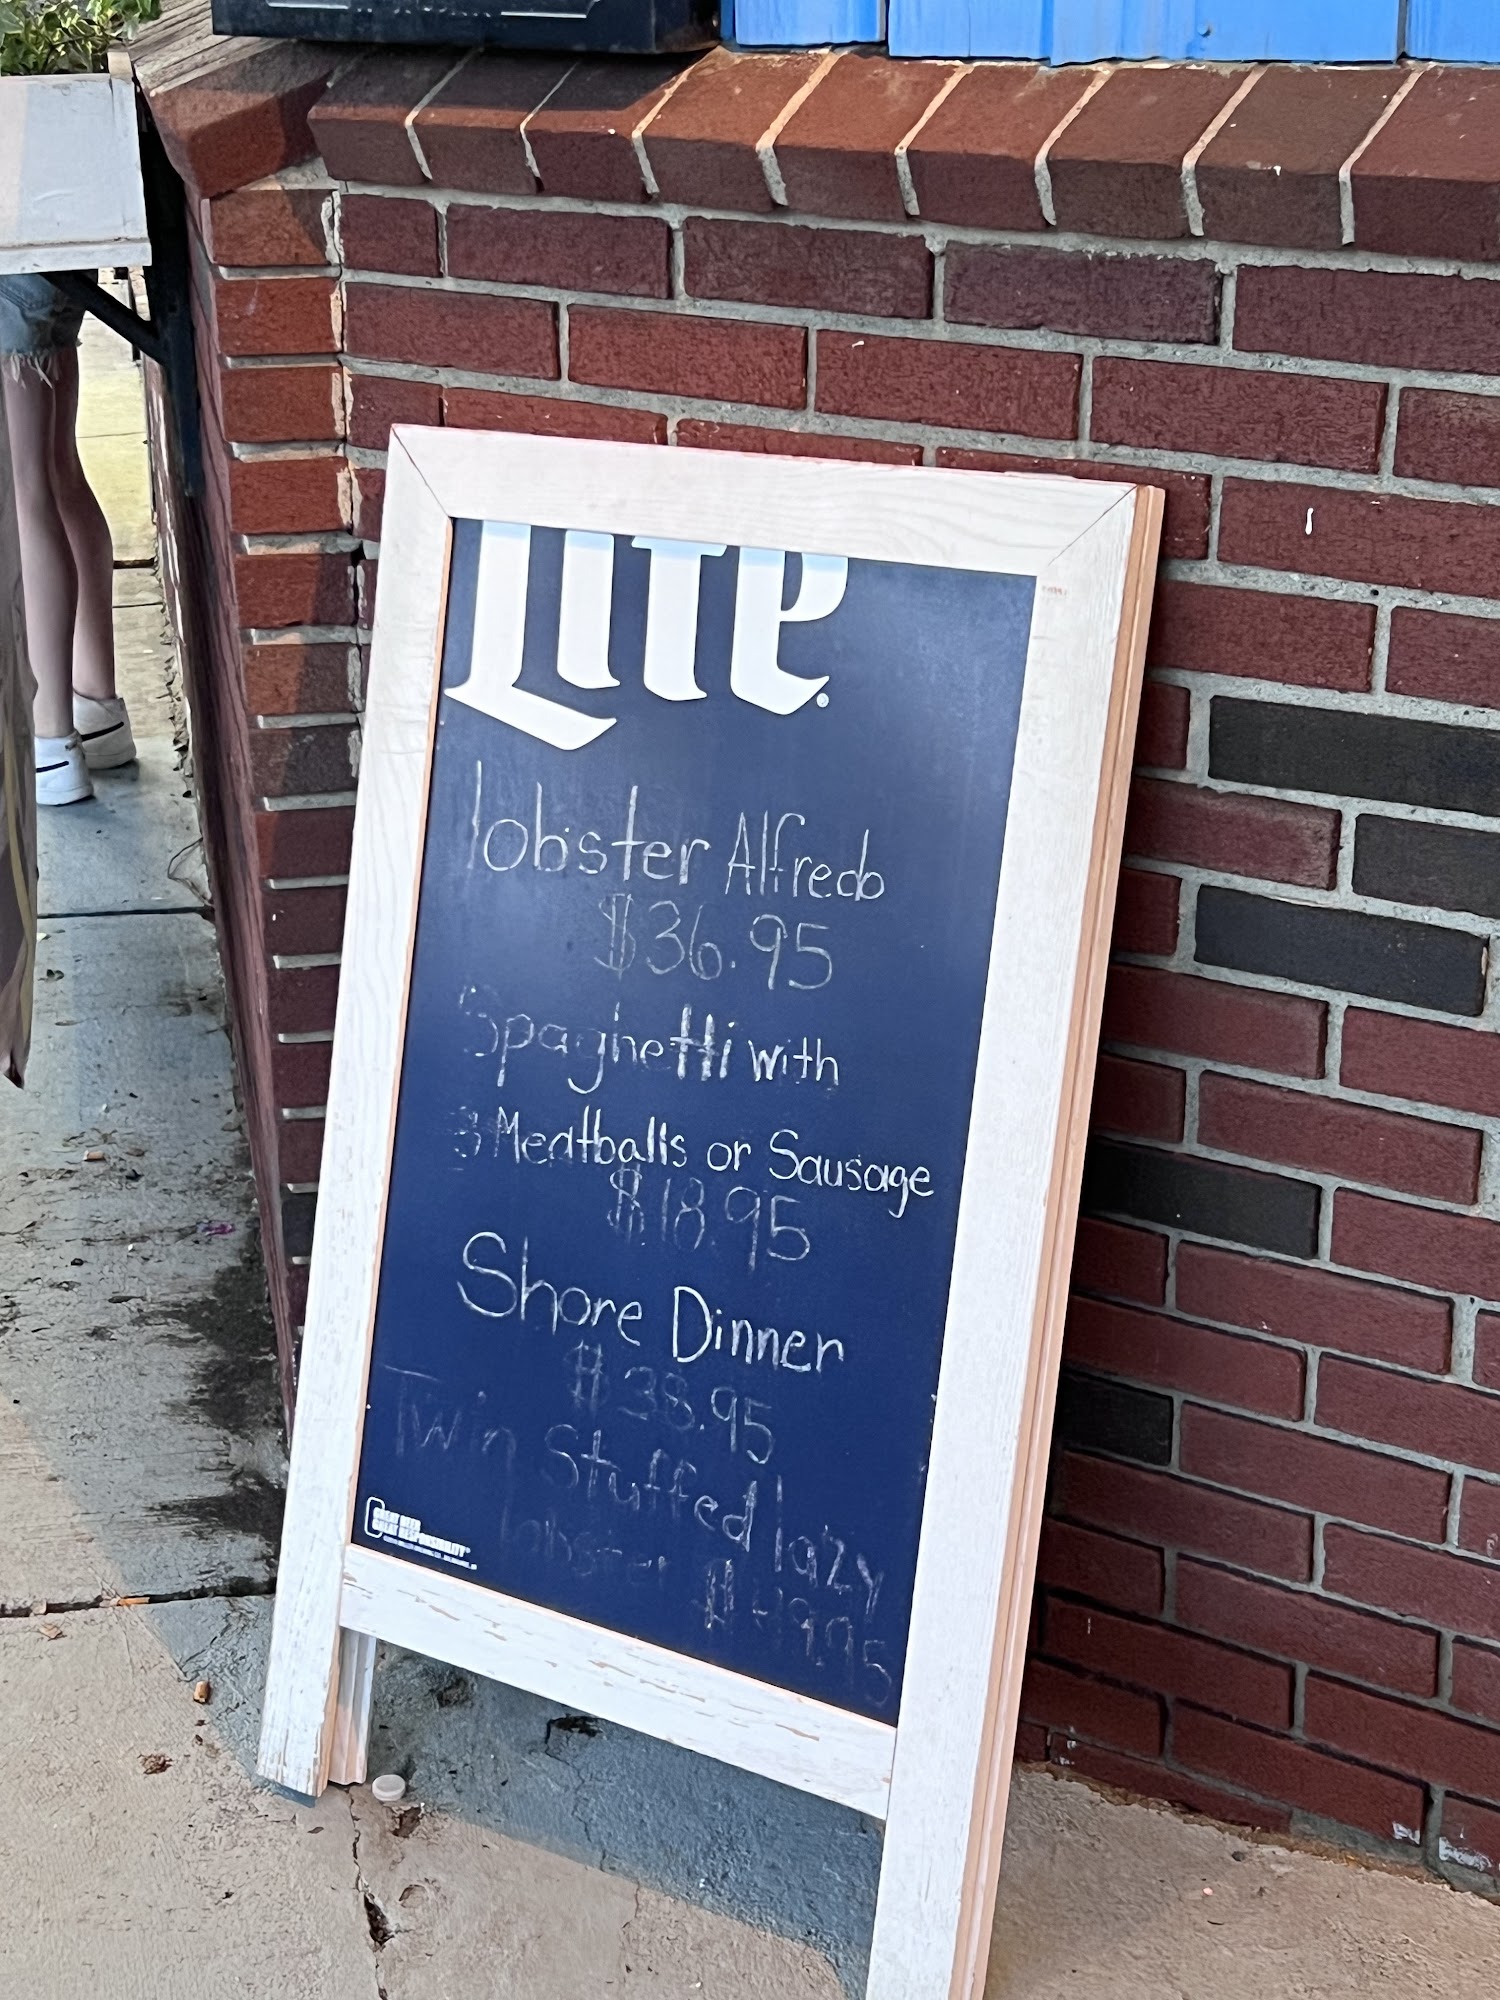 Lite
lobster Alfredo
$36.95
Spaghetti with
3 Meatballs or Sausage
$18.95
Shore Dinner
$38.95
Twin Stuffed lazy
lobster $49.95
GREAT BEER
GREAT RESPONSIBILITY®